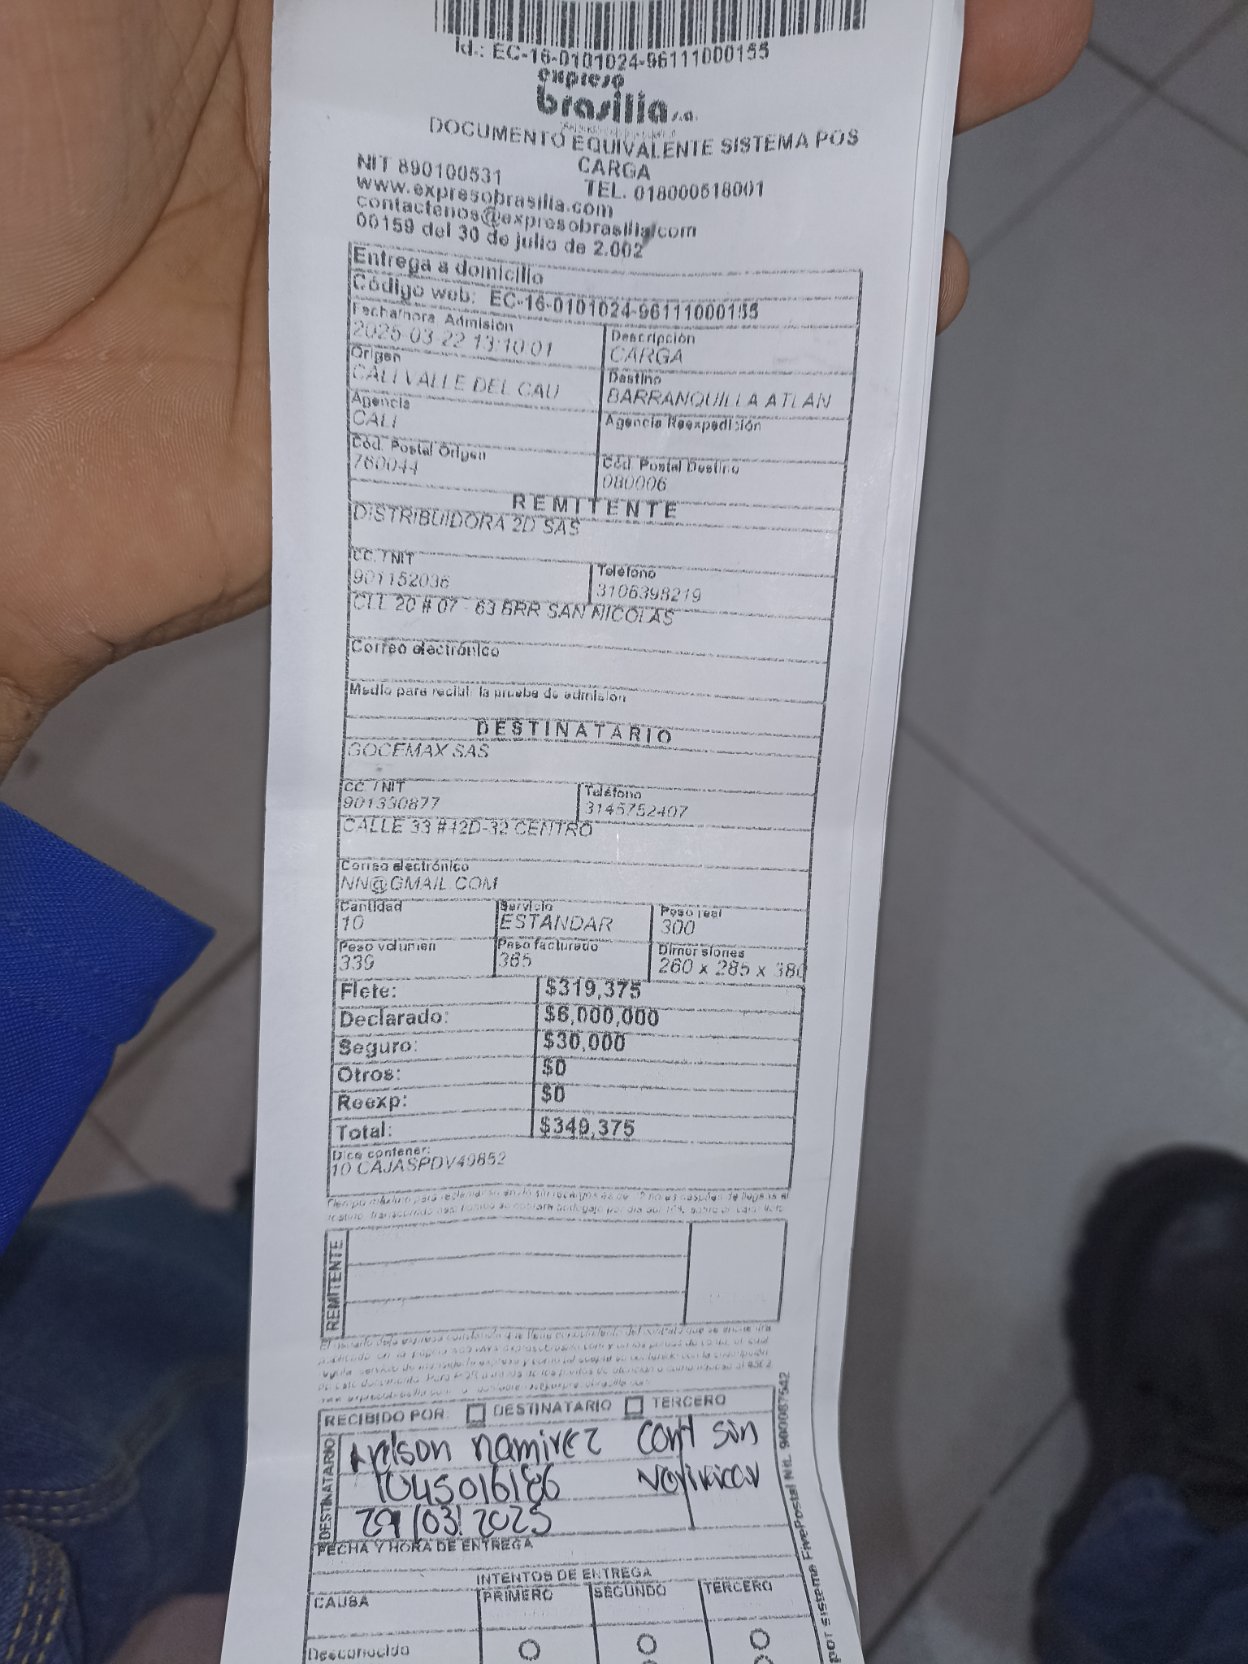 Id.: EC-16-0101024-96111000155
expreso
brasilia s.a.
DOCUMENTO EQUIVALENTE SISTEMA POS
CARGA
NIT 890100531 TEL. 018000518001
www.expresobrasilia.com
contactenos@expresobrasilia.com
00159 del 30 de julio de 2.002
Entrega a domicilio
Código web: EC-16-0101024-96111000155
Fecha/hora Admisión Descripción
2025-03-22 13:10:01 CARGA
Origen Destino
CALI VALLE DEL CAU BARRANQUILLA ATLAN
Agencia Agencia Reexpedición
CALI
Cód. Postal Origen Cód. Postal Destino
760044 080006
REMITENTE
DISTRIBUIDORA 2D SAS
CC. / NIT Teléfono
901152036 3106398219
CLL 20 # 07 - 63 BRR SAN NICOLAS
Correo electrónico
Medio para recibir la prueba de admision
DESTINATARIO
GOCEMAX SAS
CC. / NIT Teléfono
901330877 3145752407
CALLE 33 #42D-32 CENTRO
Correo electrónico
NN@GMAIL.COM
Cantidad Servicio Peso real
10 ESTANDAR 300
Peso volumen Peso facturado Dimensiones
339 365 260 x 285 x 380
Flete: $319,375
Declarado: $6,000,000
Seguro: $30,000
Otros: $0
Reexp: $0
Total: $349,375
Dice contener:
10 CAJASPDV49852
REMITENTE
RECIBIDO POR: DESTINATARIO TERCERO
DESTINATARIO
ramirez sin
1045016186
29/03/2025
FECHA Y HORA DE ENTREGA
INTENTOS DE ENTREGA
CAUSA PRIMERO SEGUNDO TERCERO
Desconocido
por sistema FivePostal Nit. 900087542